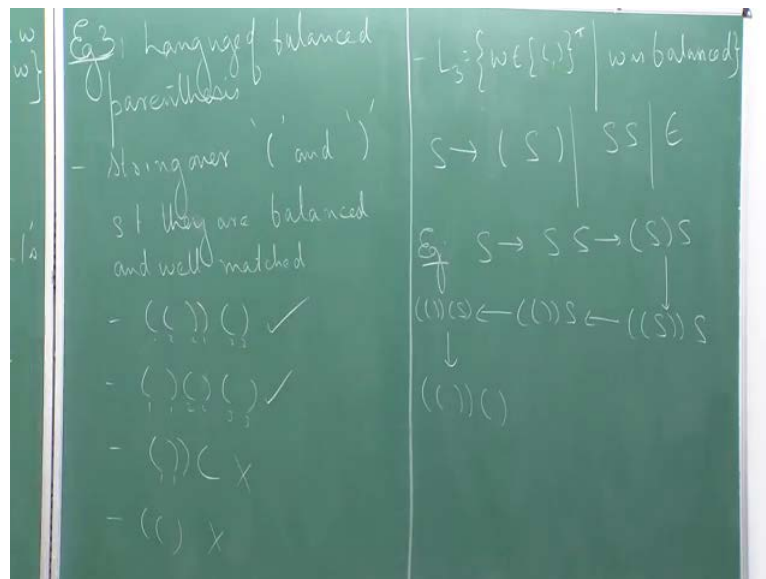 w
w}
1's
Eg 3: Language of balanced
parenthesis
- String over '(' and ')'
st they are balanced
and well matched
- (())() ✓
1 2 2 1 3 3
- ()()() ✓
1 1 2 2 3 3
- ())( X
- (() X
- L₃ = {w ∈ {(,)}* | w is balanced}
S → (S) | SS | ε
Eg: S → SS → (S)S
↓
(())(S) ← (())S ← ((S))S
↓
(())()